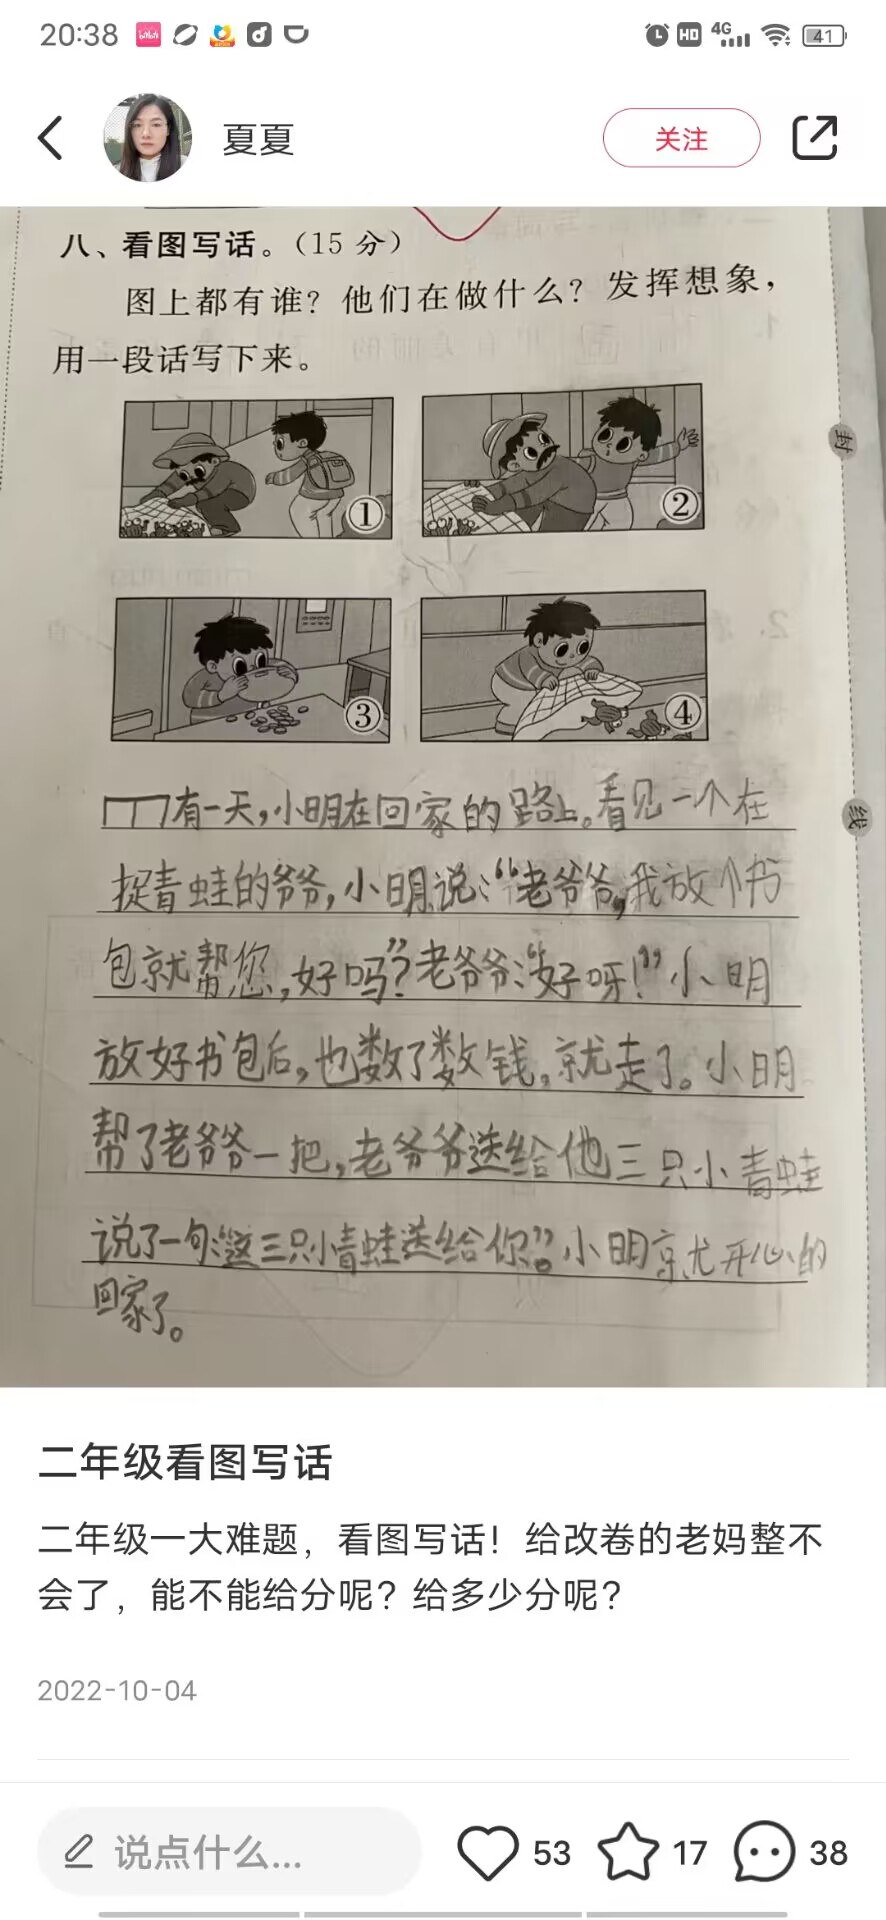 20:38
bilibili
HD
4G
41
夏夏
关注
八、看图写话。(15 分)
图上都有谁？他们在做什么？发挥想象，
用一段话写下来。
封
①
②
③
④
有一天，小明在回家的路上。看见一个在
线
捉青蛙的爷爷，小明说：“老爷爷，我放个书
包就帮您，好吗”？老爷爷：“好呀！”小明
放好书包后，也数了数钱，就走了。小明
帮了老爷爷一把，老爷爷送给他三只小青蛙
说了一句：“这三只小青蛙送给你”。小明就开心的
回家了。
二年级看图写话
二年级一大难题，看图写话！给改卷的老妈整不
会了，能不能给分呢？给多少分呢？
2022-10-04
说点什么...
53
17
38